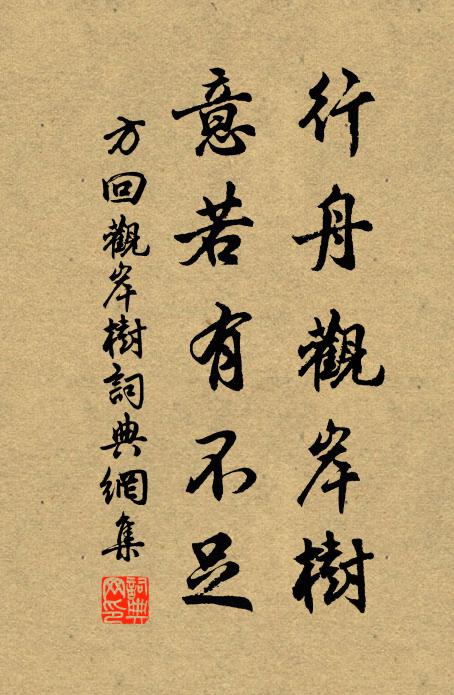 行舟觀岸樹
意若有不足
方回觀岸樹詞典網集
詞典網印